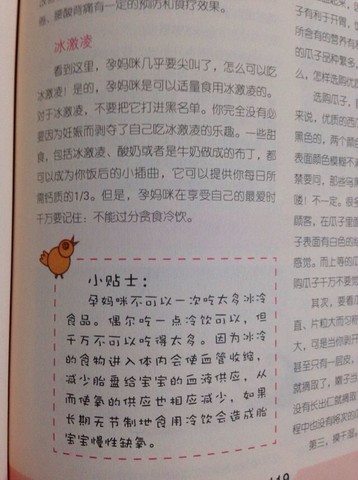 香、腰酸背痛有一定的预防和食疗效果。
冰激凌
看到这里，孕妈咪几乎要尖叫了，怎么可以吃
冰激凌！是的，孕妈咪是可以适量食用冰激凌的。
对于冰激凌，不要把它打进黑名单。你完全没有必
要因为妊娠而剥夺了自己吃冰激凌的乐趣。一些甜
食，包括冰激凌、酸奶或者是牛奶做成的布丁，都
可以成为你饭后的小插曲，它可以提供你每日所
需钙质的1/3。但是，孕妈咪在享受自己的最爱时
千万要记住：不能过分贪食冷饮。
小贴士：
孕妈咪不可以一次吃太多冰冷
食品。偶尔吃一点冷饮可以，但
千万不可以吃得太多。因为冰冷
的食物进入体内会使血管收缩，
减少胎盘给宝宝的血液供应，从
而使氧的供应也相应减少，如果
长期无节制地食用冷饮会造成胎
宝宝慢性缺氧。
子有利于开胃，
所含有的营养有
的瓜子品种繁多，
么，怎样选购优质
选购瓜子，
来说，优质的西瓜
黑色的，两个颜
表面颜色模糊不
禁要问，那些乌黑
喽！不一定。很多
顾客，在瓜子里面
子表面有白色的
感觉。而上等的瓜
购瓜子千万不要
其次，要看
直、片粒大而匀
大，可是当你剥开
甚至只有一层皮，
就摘取了，瘪子当
没有长出仁就摘
程中也没有将次
第三，摸干湿
119